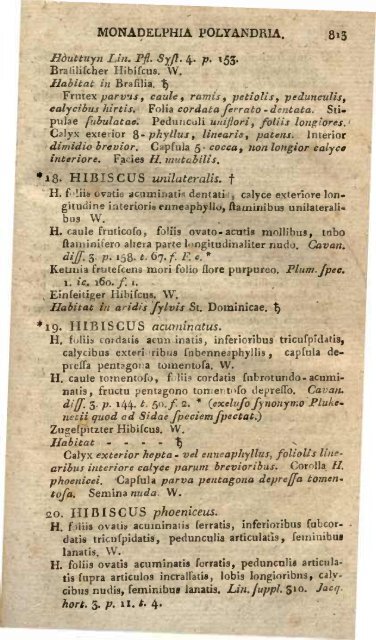 MONADELPHIA POLYANDRIA. 813
Houttuyn Lin. Pfl. Syſt. 4. p. 153.
Braſiliſcher Hibiſcus. W.
Habitat in Braſilia. ♄
Frutex parvus, caule, ramis, petiolis, pedunculis,
calycibus hirtis. Folia cordata ſerrato-dentata. Sti-
pulae ſubulatae. Pedunculi uniflori, foliis longiores.
Calyx exterior 8-phyllus, linearis, patens. Interior
dimidio brevior. Capſula 5-cocca, non longior calyce
interiore. Facies H. mutabilis.
*18. HIBISCUS unilateralis. †
H. foliis ovatis acuminatis dentatis, calyce exteriore lon-
gitudine interioris enneaphyllo, ſtaminibus unilaterali-
bus W.
H. caule fruticoſo, foliis ovato-acutis mollibus, tubo
ſtaminifero altera parte longitudinaliter nudo. Cavan.
diſſ. 3. p. 158. t. 67. f. F. c. *
Ketmia fruteſcens mori folio flore purpureo. Plum. ſpec.
1. ic. 160. f. 1.
Einſeitiger Hibiſcus. W.
Habitat in aridis ſylvis St. Dominicae. ♄
*19. HIBISCUS acuminatus.
H. foliis cordatis acuminatis, inferioribus tricuſpidatis,
calycibus exterioribus ſubenneaphyllis, capſula de-
preſſa pentagona tomentoſa. W.
H. caule tomentoſo, foliis cordatis ſubrotundo-acumi-
natis, fructu pentagono tomentoſo depreſſo. Cavan.
diſſ. 3. p. 144. t. 50. f. 2. * (excluſo ſynonymo Pluke-
netii quod ad Sidae ſpeciem ſpectat.)
Zugeſpitzter Hibiſcus. W.
Habitat - - - - ♄
Calyx exterior hepta- vel enneaphyllus, foliolis line-
aribus interiore calyce parum brevioribus. Corolla H.
phoenicei. Capſula parva pentagona depreſſa tomen-
toſa. Semina nuda. W.
20. HIBISCUS phoeniceus.
H. foliis ovatis acuminatis ſerratis, inferioribus ſubcor-
datis tricuſpidatis, pedunculis articulatis, ſeminibus
lanatis. W.
H. foliis ovatis acuminatis ſerratis, pedunculis articula-
tis ſupra articulos incraſſatis, lobis longioribus, caly-
cibus nudis, ſeminibus lanatis. Lin. ſuppl. 310. Jacq.
hort. 3. p. 11. t. 4.